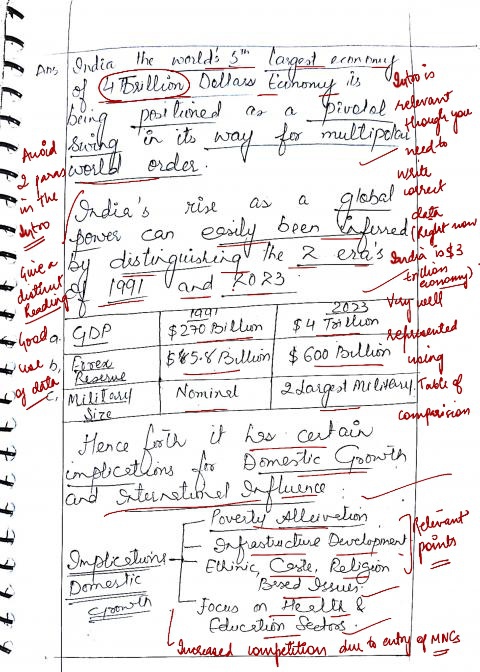 Ans India the world's 5th largest economy
of 4 Trillion Dollars Economy is
being positioned as a pivotal
swing in its way for multipolar
world order.
Intro is
relevant
though you
need to
write
correct
data
(Right now
India is $3
trillion
economy)
Avoid
2 paras
in the
Intro
India's rise as a global
power can easily been inferred
by distinguishing the 2 era's
of 1991 and 2023.
Give a
distinct
Heading
1991 2023
a. GDP $270 Billion $4 Trillion
b. Forex Reserve $5.8 Billion $600 Billion
c. Military Size Nominal 2 Largest Military.
Good
use
of data
Very well
represented
using
Table of
comparision
Hence forth it has certain
implications for Domestic Growth
and International Influence.
Implications
Domestic
Growth
Poverty Alleivation
Infrastructure Development
Ethinic, Caste, Religion
Based Issues.
Focus on Health &
Education Sectors.
Relevant
points
Increased competition due to entry of MNCs